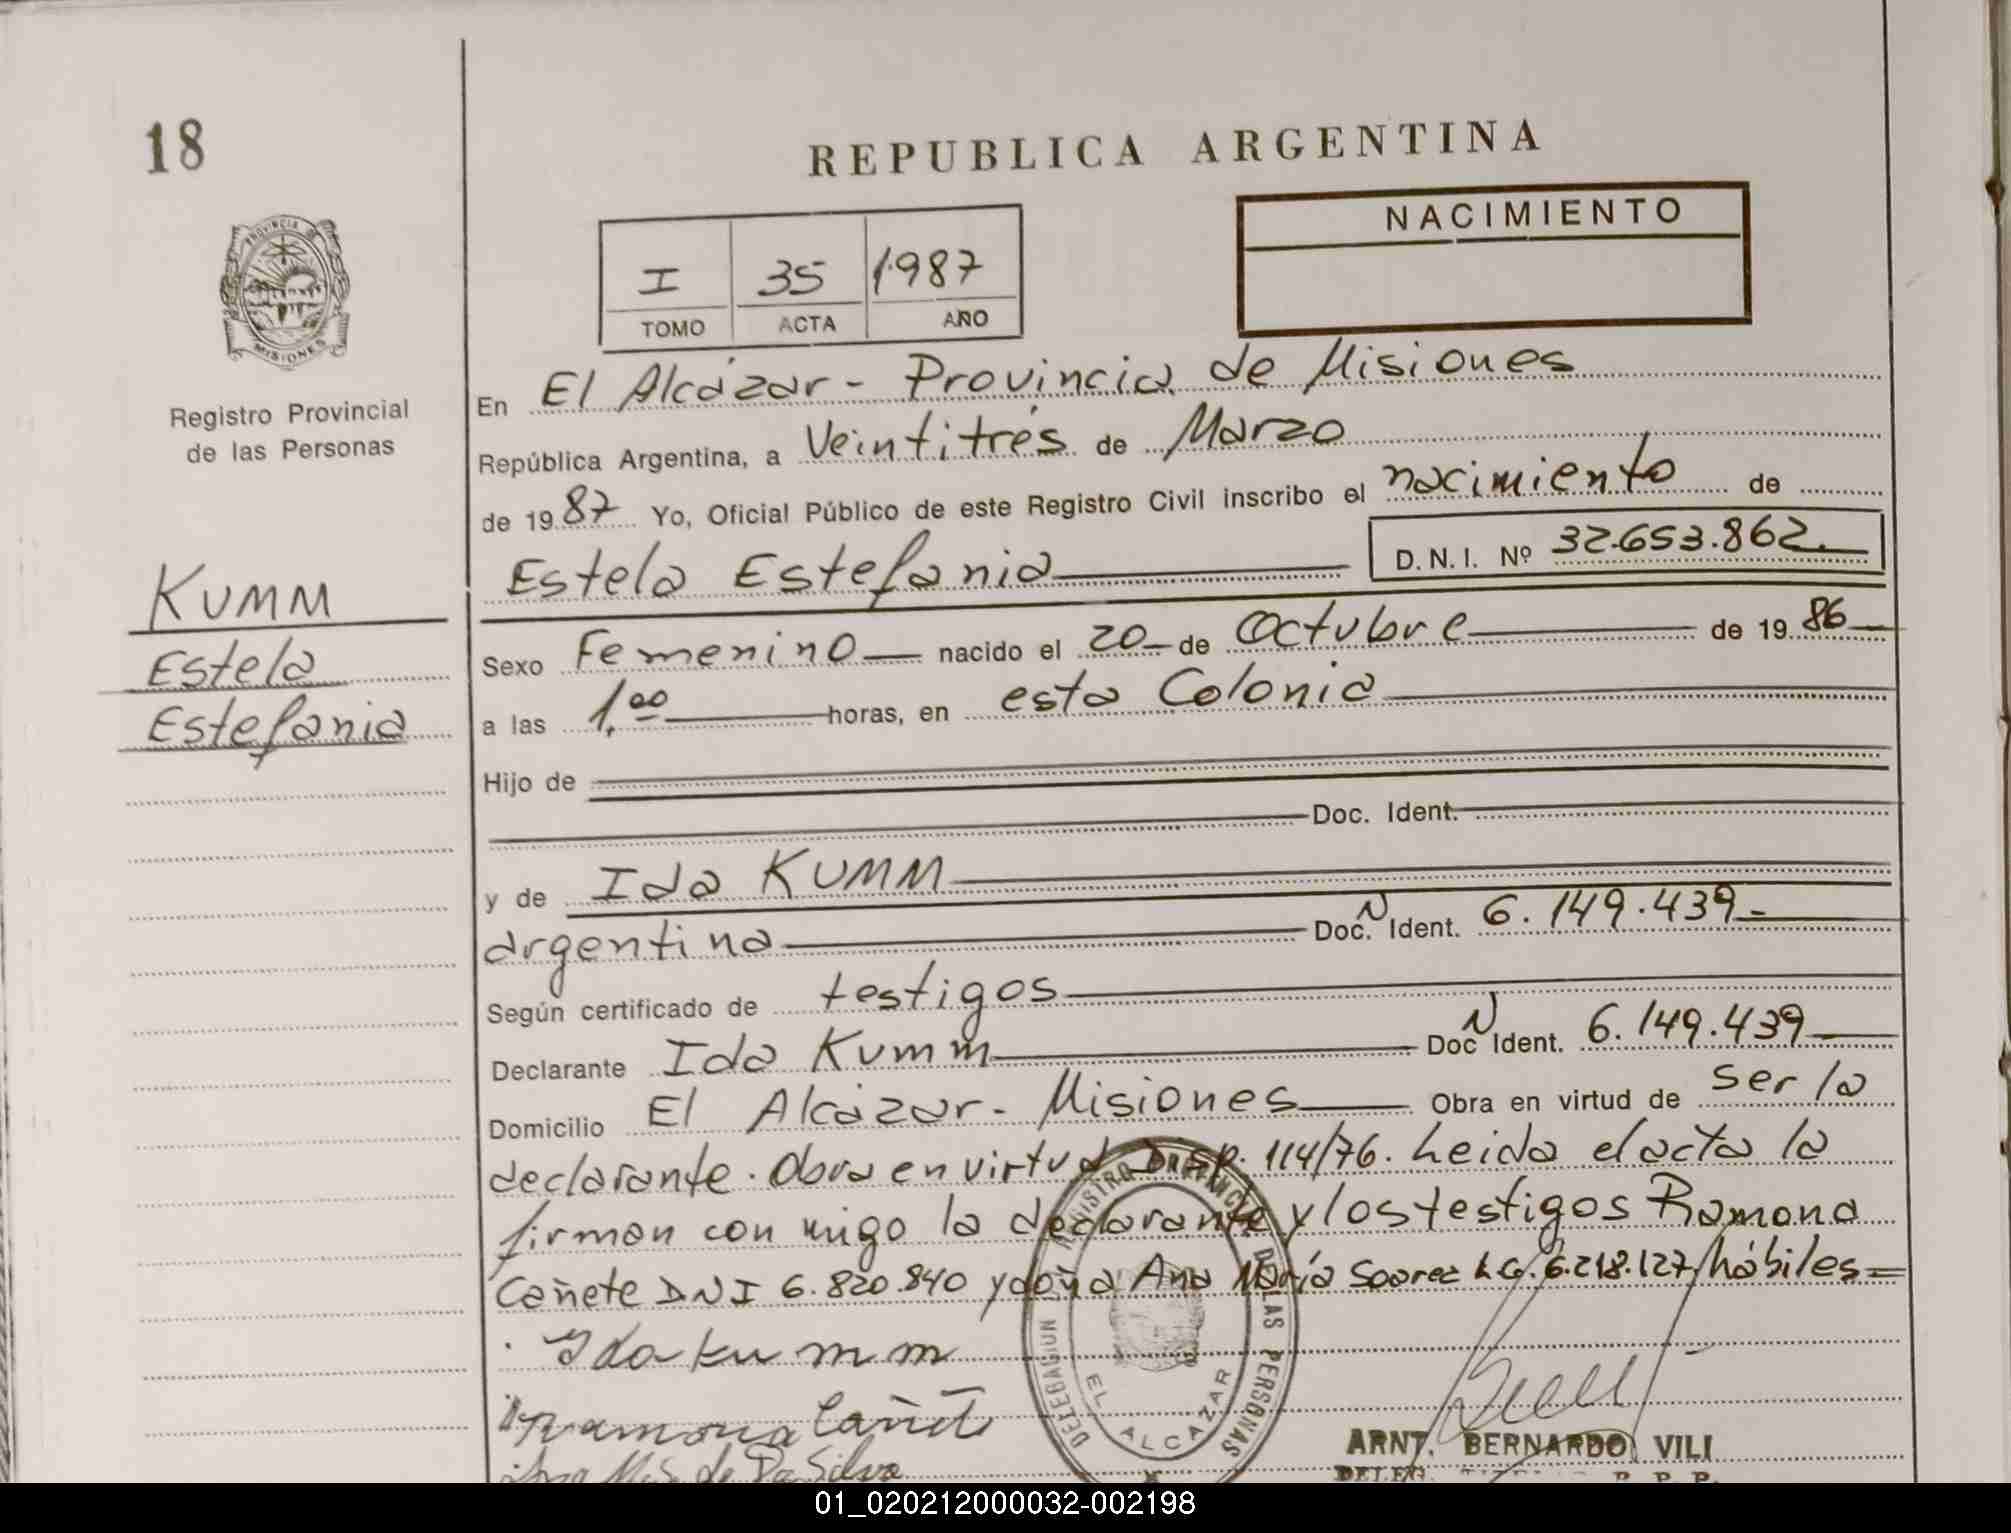 18
REPUBLICA ARGENTINA
PROVINCIA DE
MISIONES
Registro Provincial
de las Personas
NACIMIENTO
I 35 1987
TOMO ACTA AÑO
En El Alcázar - Provincia de Misiones
República Argentina, a Veintitrés de Marzo
de 1987 Yo, Oficial Público de este Registro Civil inscribo el nacimiento de
D.N.I. Nº 32.653.862.
Estela Estefania
KUMM
Estela
Estefania
Sexo Femenino nacido el 20 de Octubre de 1986
a las 1,00 horas, en esta Colonia
Hijo de
Doc. Ident.
y de Ida KUMM
argentina Doc. N Ident. 6.149.439-
Según certificado de testigos
Declarante Ida Kumm Doc N Ident. 6.149.439
Domicilio El Alcázar - Misiones Obra en virtud de ser la
declarante. Obra en virtud Disp. 114/76. Leida el acta la
firman con migo la declarante y los testigos Ramona
Cañete DNI 6.820.840 y doña Ana María Soarez L.C. 6.218.127/hábiles=
Ida kumm
Ramona Cañete
de Da Silva
DELEGACION REGISTRO PROVINCIAL DE LAS PERSONAS
EL ALCAZAR
ARNT. BERNARDO VILI
01_020212000032-002198